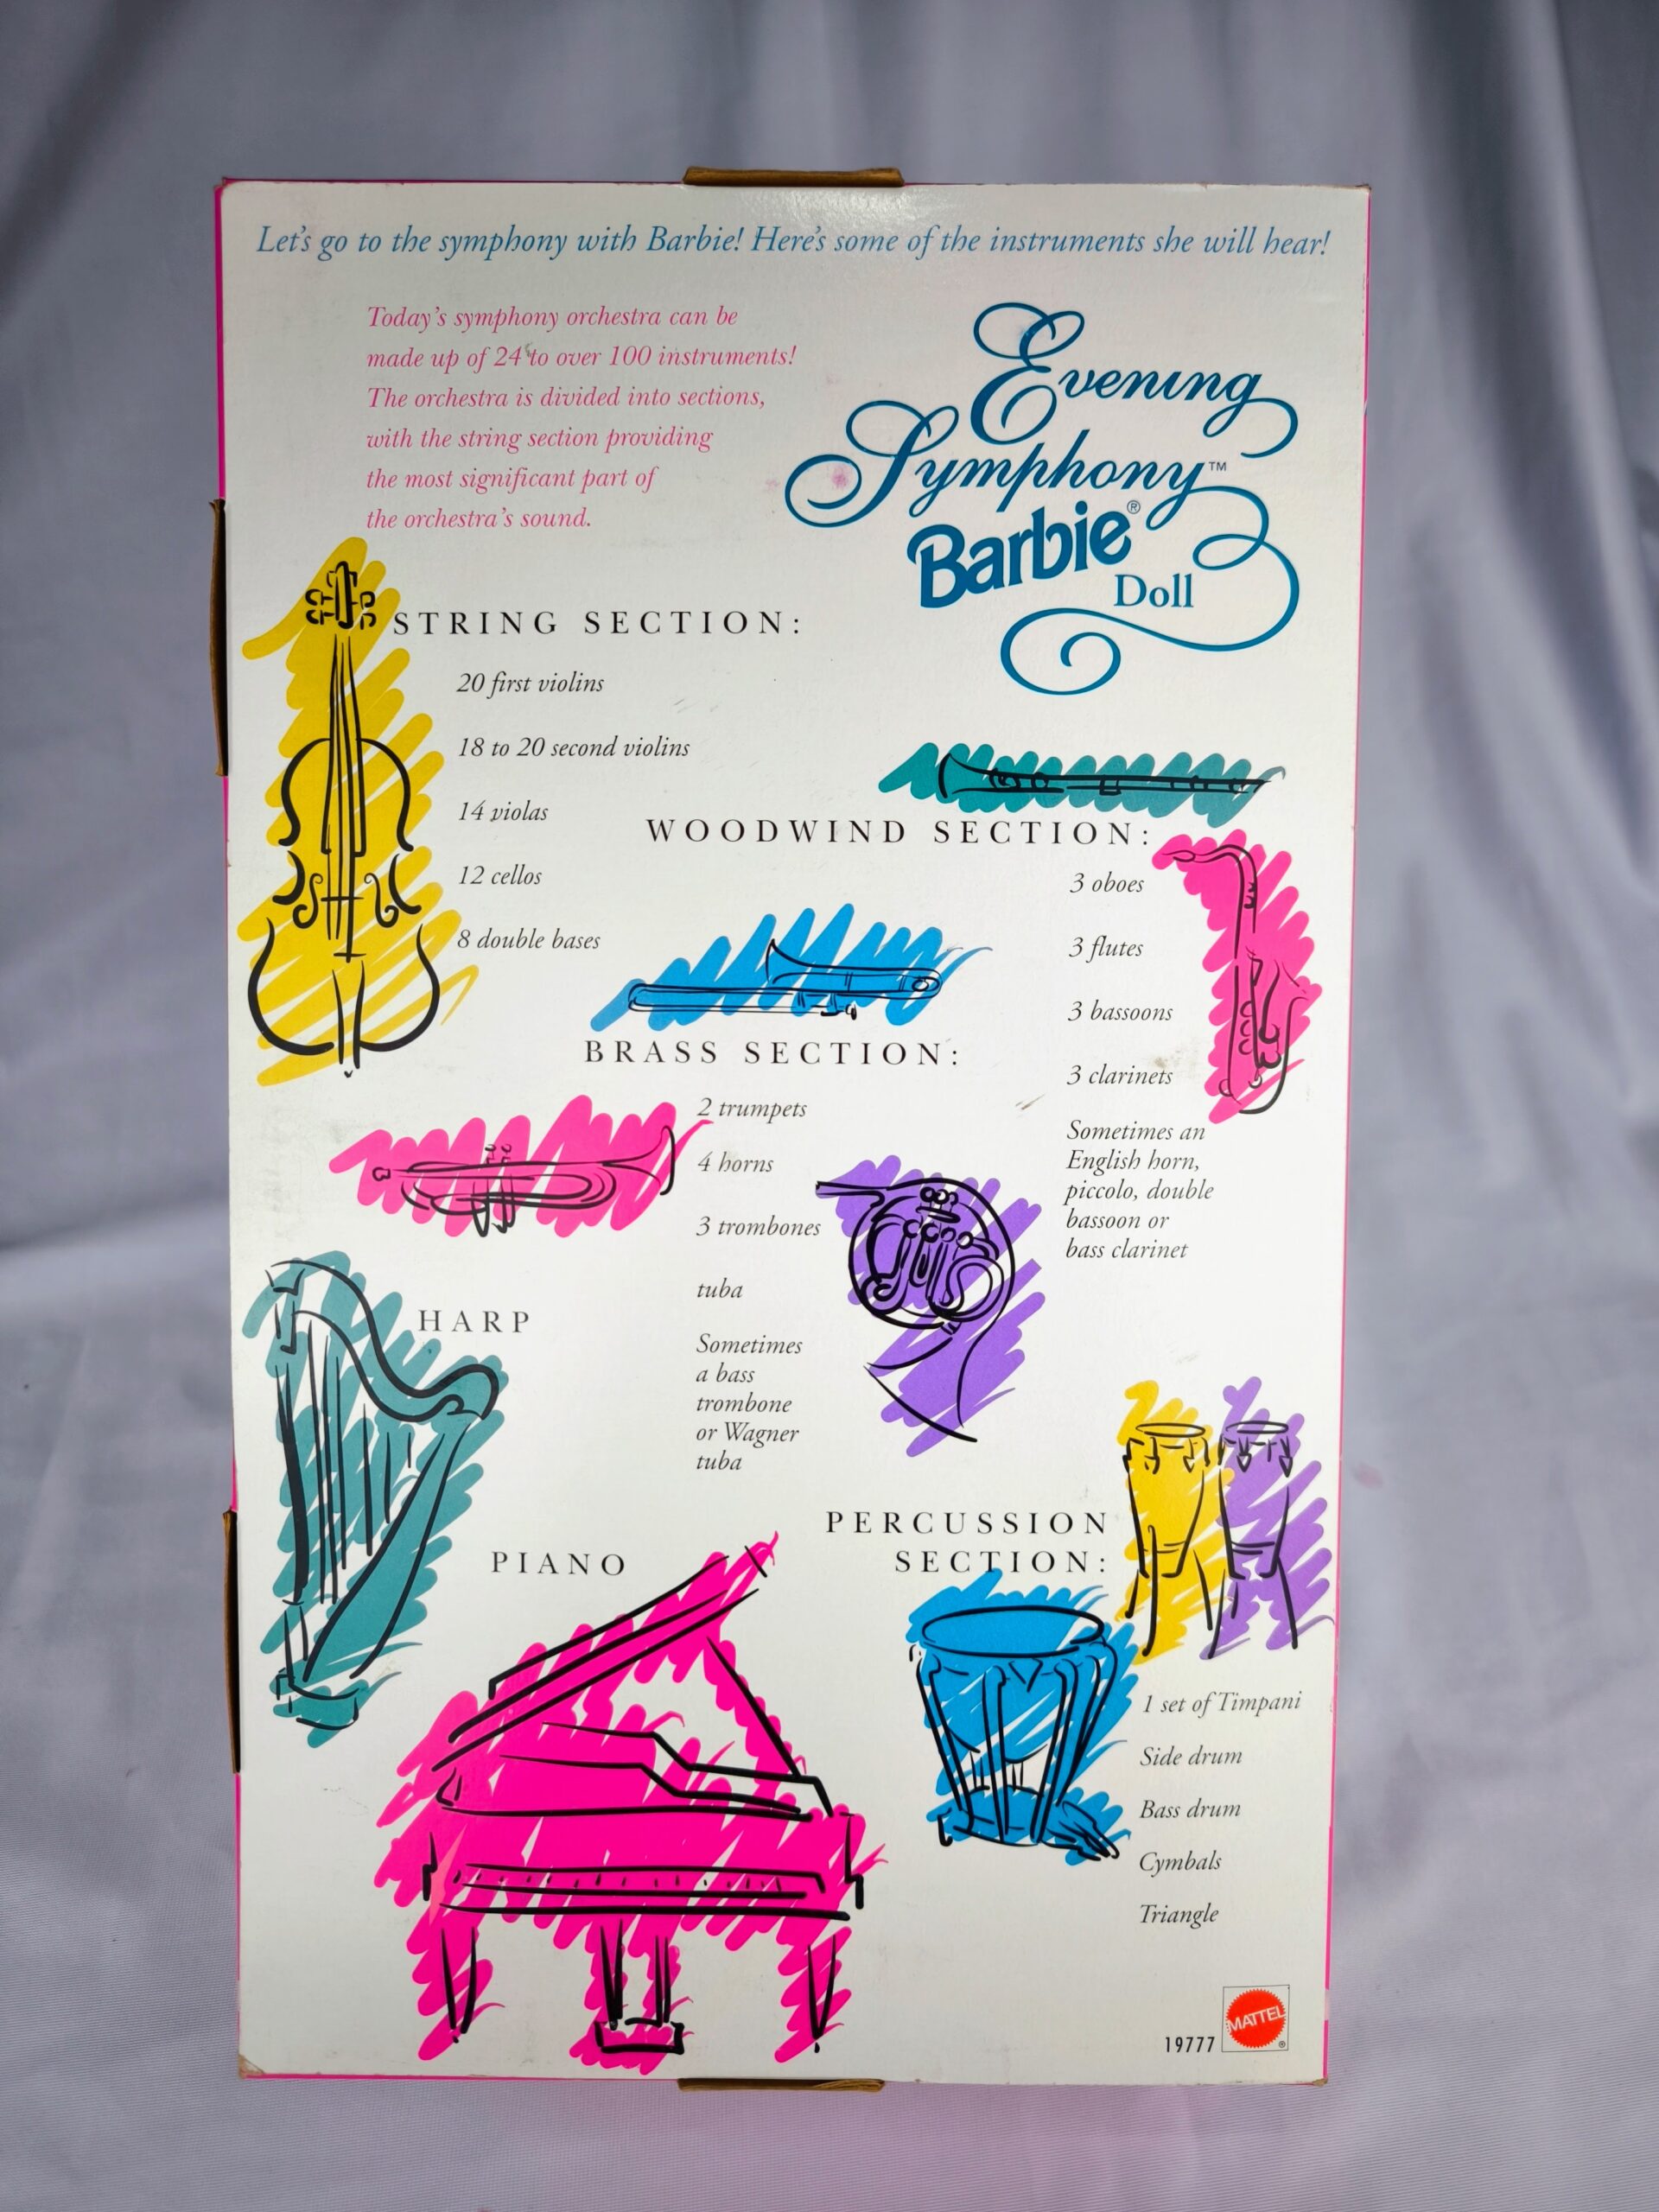 Let's go to the symphony with Barbie! Here's some of the instruments she will hear!
Today's symphony orchestra can be
made up of 24 to over 100 instruments!
The orchestra is divided into sections,
with the string section providing
the most significant part of
the orchestra's sound.
Evening
Symphony™
Barbie®
Doll
STRING SECTION:
20 first violins
18 to 20 second violins
14 violas
12 cellos
8 double bases
WOODWIND SECTION:
3 oboes
3 flutes
3 bassoons
3 clarinets
Sometimes an
English horn,
piccolo, double
bassoon or
bass clarinet
BRASS SECTION:
2 trumpets
4 horns
3 trombones
tuba
Sometimes
a bass
trombone
or Wagner
tuba
HARP
PIANO
PERCUSSION
SECTION:
1 set of Timpani
Side drum
Bass drum
Cymbals
Triangle
19777
MATTEL
®